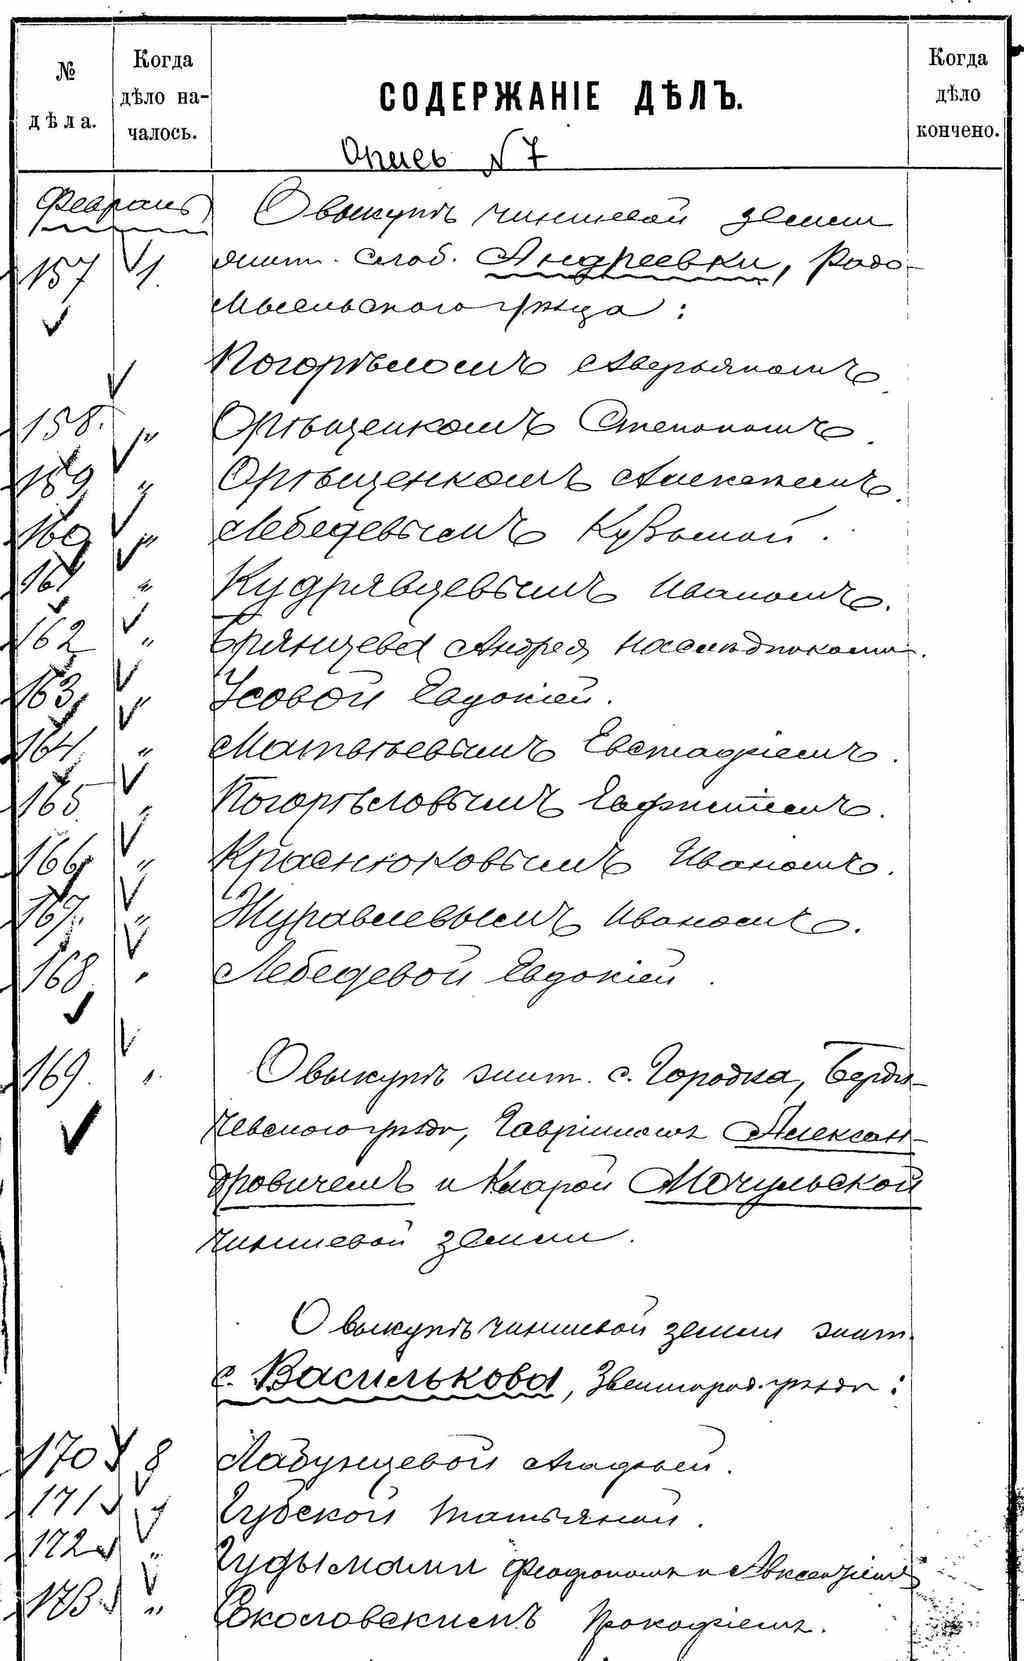 № дѣла.
Когда дѣло началось.
СОДЕРЖАНІЕ ДѢЛЪ.
Когда дѣло кончено.
Опись N 7
Февраль
О выкупѣ чиншевой земли
157 1. жит. слоб. Андреевки, Радо-
мысльскаго уѣзда:
Погорѣлымъ Аверьяномъ
158. " Орѣщенкомъ Степаномъ.
159 " Орѣщенкомъ Алексѣемъ.
160 " Лебедевымъ Кузьмой.
161 " Кудрявцевымъ Иваномъ.
162 " Брянцева Андрея наслѣдниками.
163 " Усовой Евдокіей.
164 " Матвѣевымъ Евстафіемъ.
165 " Погорѣловымъ
166 " Краснюковымъ Иваномъ.
167. " Журавлевымъ Иваномъ.
168 " Лебедевой Евдокіей.
169. " О выкупѣ жит. с. Городка, Берди-
чевскаго уѣзда, Гавріиломъ Алексан-
дровичемъ и Кларой Мочульской
чиншевой земли.
О выкупѣ чиншевой земли жит.
с. Василькова, Звенигород. уѣзда:
170 8 Лабунцевой Агафьей.
171 " Губской Татьяной.
172 " Гудымами Феофаномъ и Авксентіемъ
173 " Соколовскимъ Прокофіемъ.